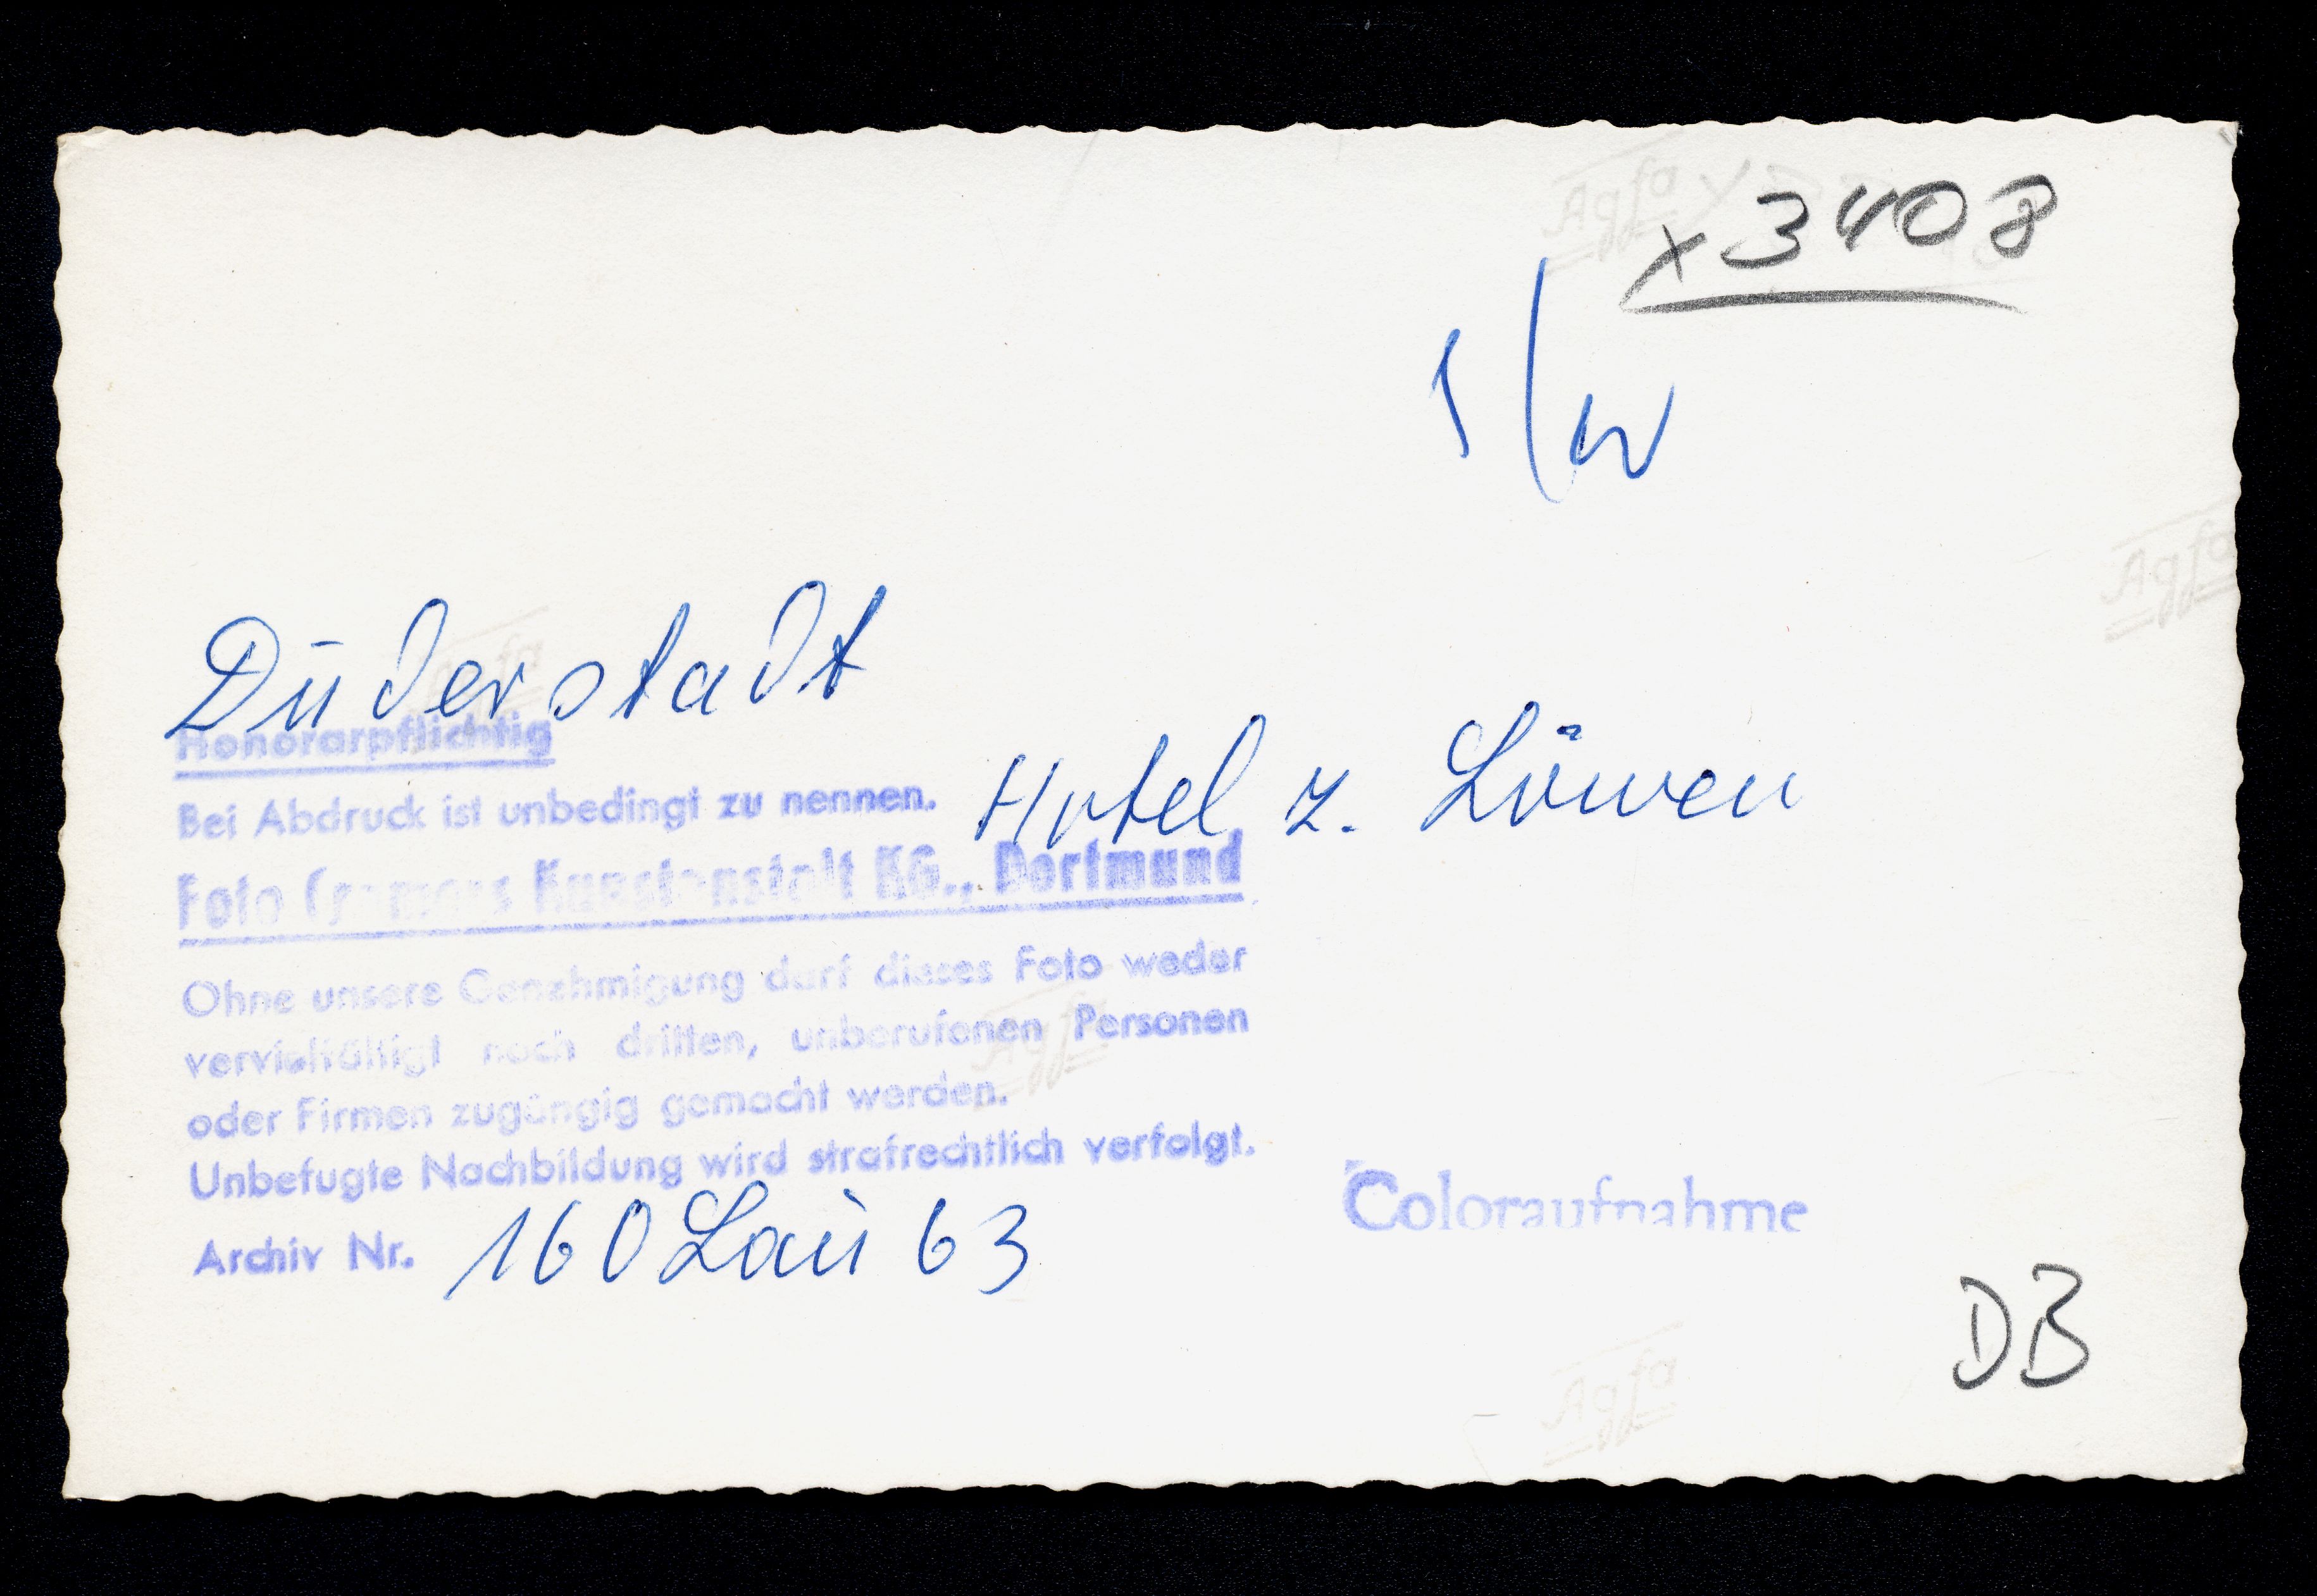 x3408
s/w
Duderstadt
Honorarpflichtig
Hotel z. Löwen
Bei Abdruck ist unbedingt zu nennen.
Foto Cramers Kunstanstalt KG., Dortmund
Ohne unsere Genehmigung darf dieses Foto weder
vervielfältigt noch dritten, unberufenen Personen
oder Firmen zugängig gemacht werden.
Unbefugte Nachbildung wird strafrechtlich verfolgt.
Archiv Nr. 160 Lau 63
Coloraufnahme
DB
Agfa
Agfa
Agfa
Agfa
Agfa